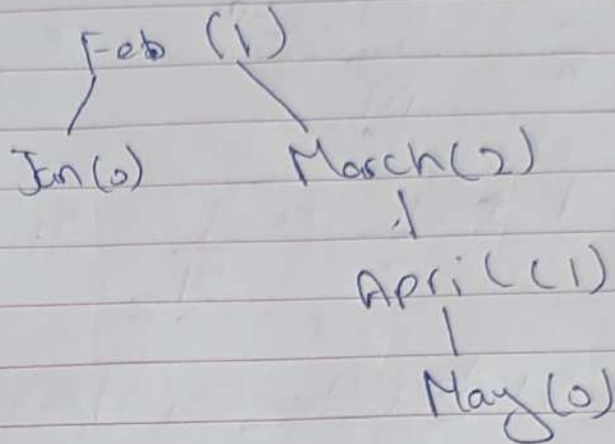 Feb (1)
Jan (0) March (2)
April (1)
May (0)